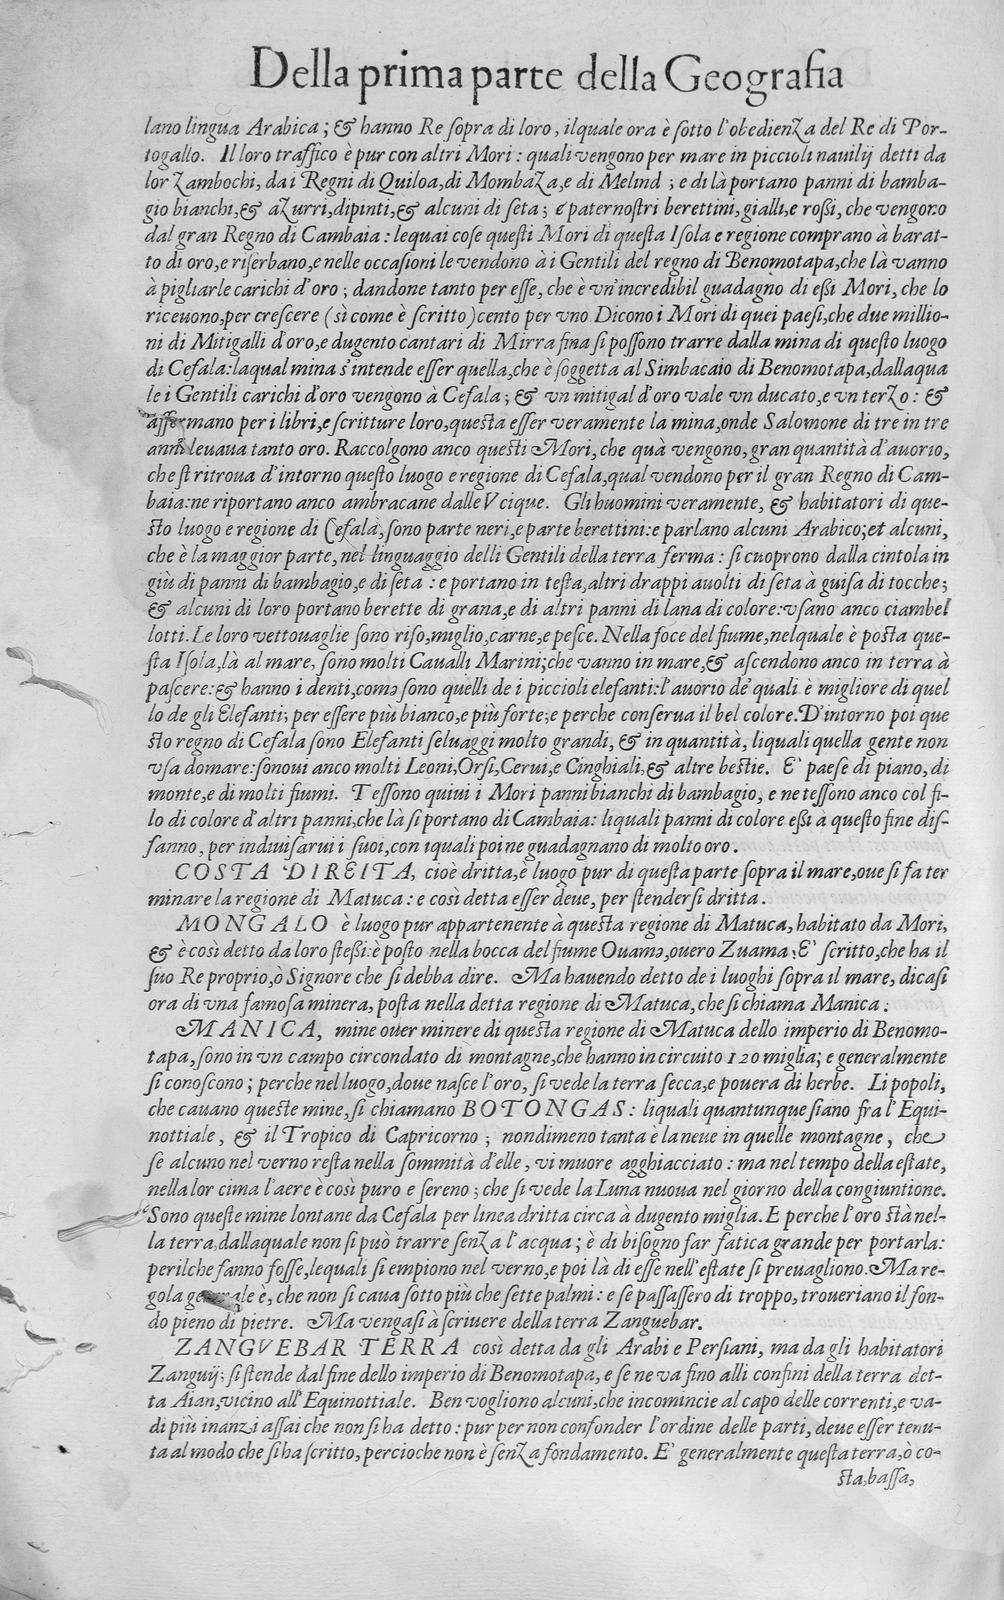 Della prima parte della Geografia
lano lingua Arabica; & hanno Re sopra di loro, ilquale ora è sotto l'obedienza del Re di Por-
togallo. Il loro traffico è pur con altri Mori: quali vengono per mare in piccioli nauilij detti da
lor Zambochi, da i Regni di Quiloa, di Mombaza, e di Melind; e di là portano panni di bamba-
gio bianchi, & azurri, dipinti, & alcuni di seta; e paternostri berettini, gialli, e rossi, che vengono
dal gran Regno di Cambaia: lequai cose questi Mori di questa Isola e regione comprano à barat-
to di oro, e riserbano, e nelle occasioni le vendono à i Gentili del regno di Benomotapa, che là vanno
à pigliarle carichi d'oro; dandone tanto per esse, che è un'incredibil guadagno di essi Mori, che lo
riceuono, per crescere (sì come è scritto) cento per vno Dicono i Mori di quei paesi, che due millio-
ni di Mitigalli d'oro, e dugento cantari di Mirra fina si possono trarre dalla mina di questo luogo
di Cefala: laqual mina s'intende esser quella, che è soggetta al Simbacaio di Benomotapa, dallaqua
le i Gentili carichi d'oro vengono à Cefala; & vn mitigal d'oro vale vn ducato, e vn terzo: &
affermano per i libri, e scritture loro, questa esser veramente la mina, onde Salomone di tre in tre
anni leuaua tanto oro. Raccolgono anco questi Mori, che quà vengono, gran quantità d'auorio,
che si ritroua d'intorno questo luogo e regione di Cefala, qual vendono per il gran Regno di Cam-
baia: ne riportano anco ambracane dalle Vcique. Gli huomini veramente, & habitatori di que-
sto luogo e regione di Cefala, sono parte neri, e parte berettini: e parlano alcuni Arabico; et alcuni,
che è la maggior parte, nel linguaggio delli Gentili della terra ferma: si cuoprono dalla cintola in
giù di panni di bambagio, e di seta: e portano in testa, altri drappi auolti di seta à guisa di tocche;
& alcuni di loro portano berette di grana, e di altri panni di lana di colore: vsano anco ciambel
lotti. Le loro vettouaglie sono riso, miglio, carne, e pesce. Nella foce del fiume, nelquale è posta que-
sta Isola, là al mare, sono molti Caualli Marini; che vanno in mare, & ascendono anco in terra à
pascere: & hanno i denti, come sono quelli de i piccioli elefanti: l'auorio de' quali è migliore di quel
lo de gli Elefanti; per essere più bianco, e più forte; e perche conserua il bel colore. D'intorno poi que
sto regno di Cefala sono Elefanti seluaggi molto grandi, & in quantità, liquali quella gente non
vsa domare: sonoui anco molti Leoni, Orsi, Cerui, e Cinghiali, & altre bestie. E' paese di piano, di
monte, e di molti fiumi. Tessono quiui i Mori panni bianchi di bambagio, e ne tessono anco col fi-
lo di colore d'altri panni, che là si portano di Cambaia: liquali panni di colore essi à questo fine dis-
fanno, per indiuisarui i suoi, con iquali poi ne guadagnano di molto oro.
COSTA DIREITA, cioè dritta, è luogo pur di questa parte sopra il mare, oue si fa ter
minare la regione di Matuca: e così detta esser deue, per stendersi dritta.
MONGALO è luogo pur appartenente à questa regione di Matuca, habitato da Mori,
& è così detto da loro stessi: è posto nella bocca del fiume Ouama, ouero Zuama: E' scritto, che ha il
suo Re proprio, ò Signore che si debba dire. Ma hauendo detto de i luoghi sopra il mare, dicasi
ora di vna famosa minera, posta nella detta regione di Matuca, che si chiama Manica:
MANICA, mine ouer minere di questa regione di Matuca dello imperio di Benomo-
tapa, sono in vn campo circondato di montagne, che hanno in circuito 120 miglia; e generalmente
si conoscono; perche nel luogo, doue nasce l'oro, si vede la terra secca, e pouera di herbe. Li popoli,
che cauano queste mine, si chiamano BOTONGAS: liquali quantunque siano fra l'Equi-
nottiale, & il Tropico di Capricorno; nondimeno tanta è la neue in quelle montagne, che
se alcuno nel verno resta nella sommità d'elle, vi muore agghiacciato: ma nel tempo della estate,
nella lor cima l'aere è così puro e sereno; che si vede la Luna nuoua nel giorno della congiuntione.
Sono queste mine lontane da Cefala per linea dritta circa à dugento miglia. E perche l'oro stà nel-
la terra, dallaquale non si può trarre senza l'acqua; è di bisogno far fatica grande per portarla:
perilche fanno fosse, lequali si empiono nel verno, e poi là di esse nell'estate si preuagliono. Ma re-
gola generale è, che non si caua sotto più che sette palmi: e se passassero di troppo, troueriano il fon-
do pieno di pietre. Ma vengasi à scriuere della terra Zanguebar.
ZANGVEBAR TERRA così detta da gli Arabi e Persiani, ma da gli habitatori
Zanguij; si stende dal fine dello imperio di Benomotapa, e se ne va fino alli confini della terra det-
ta Aian, vicino all'Equinottiale. Ben vogliono alcuni, che incomincie al capo delle correnti, e va-
di più inanzi assai che non si ha detto: pur per non confonder l'ordine delle parti, deue esser tenu-
ta al modo che si ha scritto, percioche non è senza fondamento. E' generalmente questa terra, ò co-
sta, bassa,